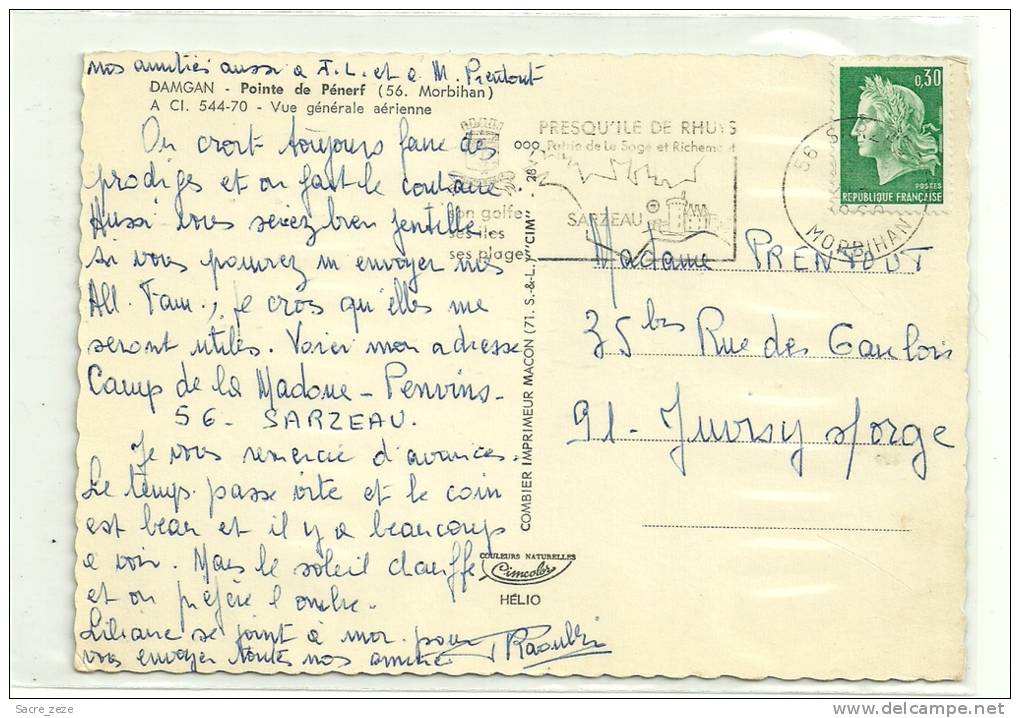 nos amitiés aussi à J.L. et à M. Prentout
DAMGAN - Pointe de Pénerf (56. Morbihan)
A CI. 544-70 - Vue générale aérienne
On croit toujours faire des
prodiges et on fait le contraire.
Aussi vous seriez bien gentille
si vous pouvez m'envoyer mes
All. Fam., je crois qu'elles me
seront utiles. Voici mon adresse
Camp de la Madone - Penvins -
56 - SARZEAU.
Je vous remercie d'avances.
Le temps passe vite et le coin
est beau et il y a beaucoup
à voir. Mais le soleil chauffe
et on préfère l'ombre.
Liliane se joint à moi pour
vous envoyer toutes nos amitiés
son golfe
ses îles
ses plages
PRESQU'ILE DE RHUYS
Patrie de Le Sage et Richemont
SARZEAU
COMBIER IMPRIMEUR MACON (71. S.-&-L.) "CIM"
COULEURS NATURELLES
Cimcolor
HÉLIO
0,30
POSTES
REPUBLIQUE FRANÇAISE
56 SARZEAU
MORBIHAN
Madame PRENTOUT
35 bis Rue des Gaulois
91 - Juvisy s/orge
Sacre_zeze
www.delcampe.net